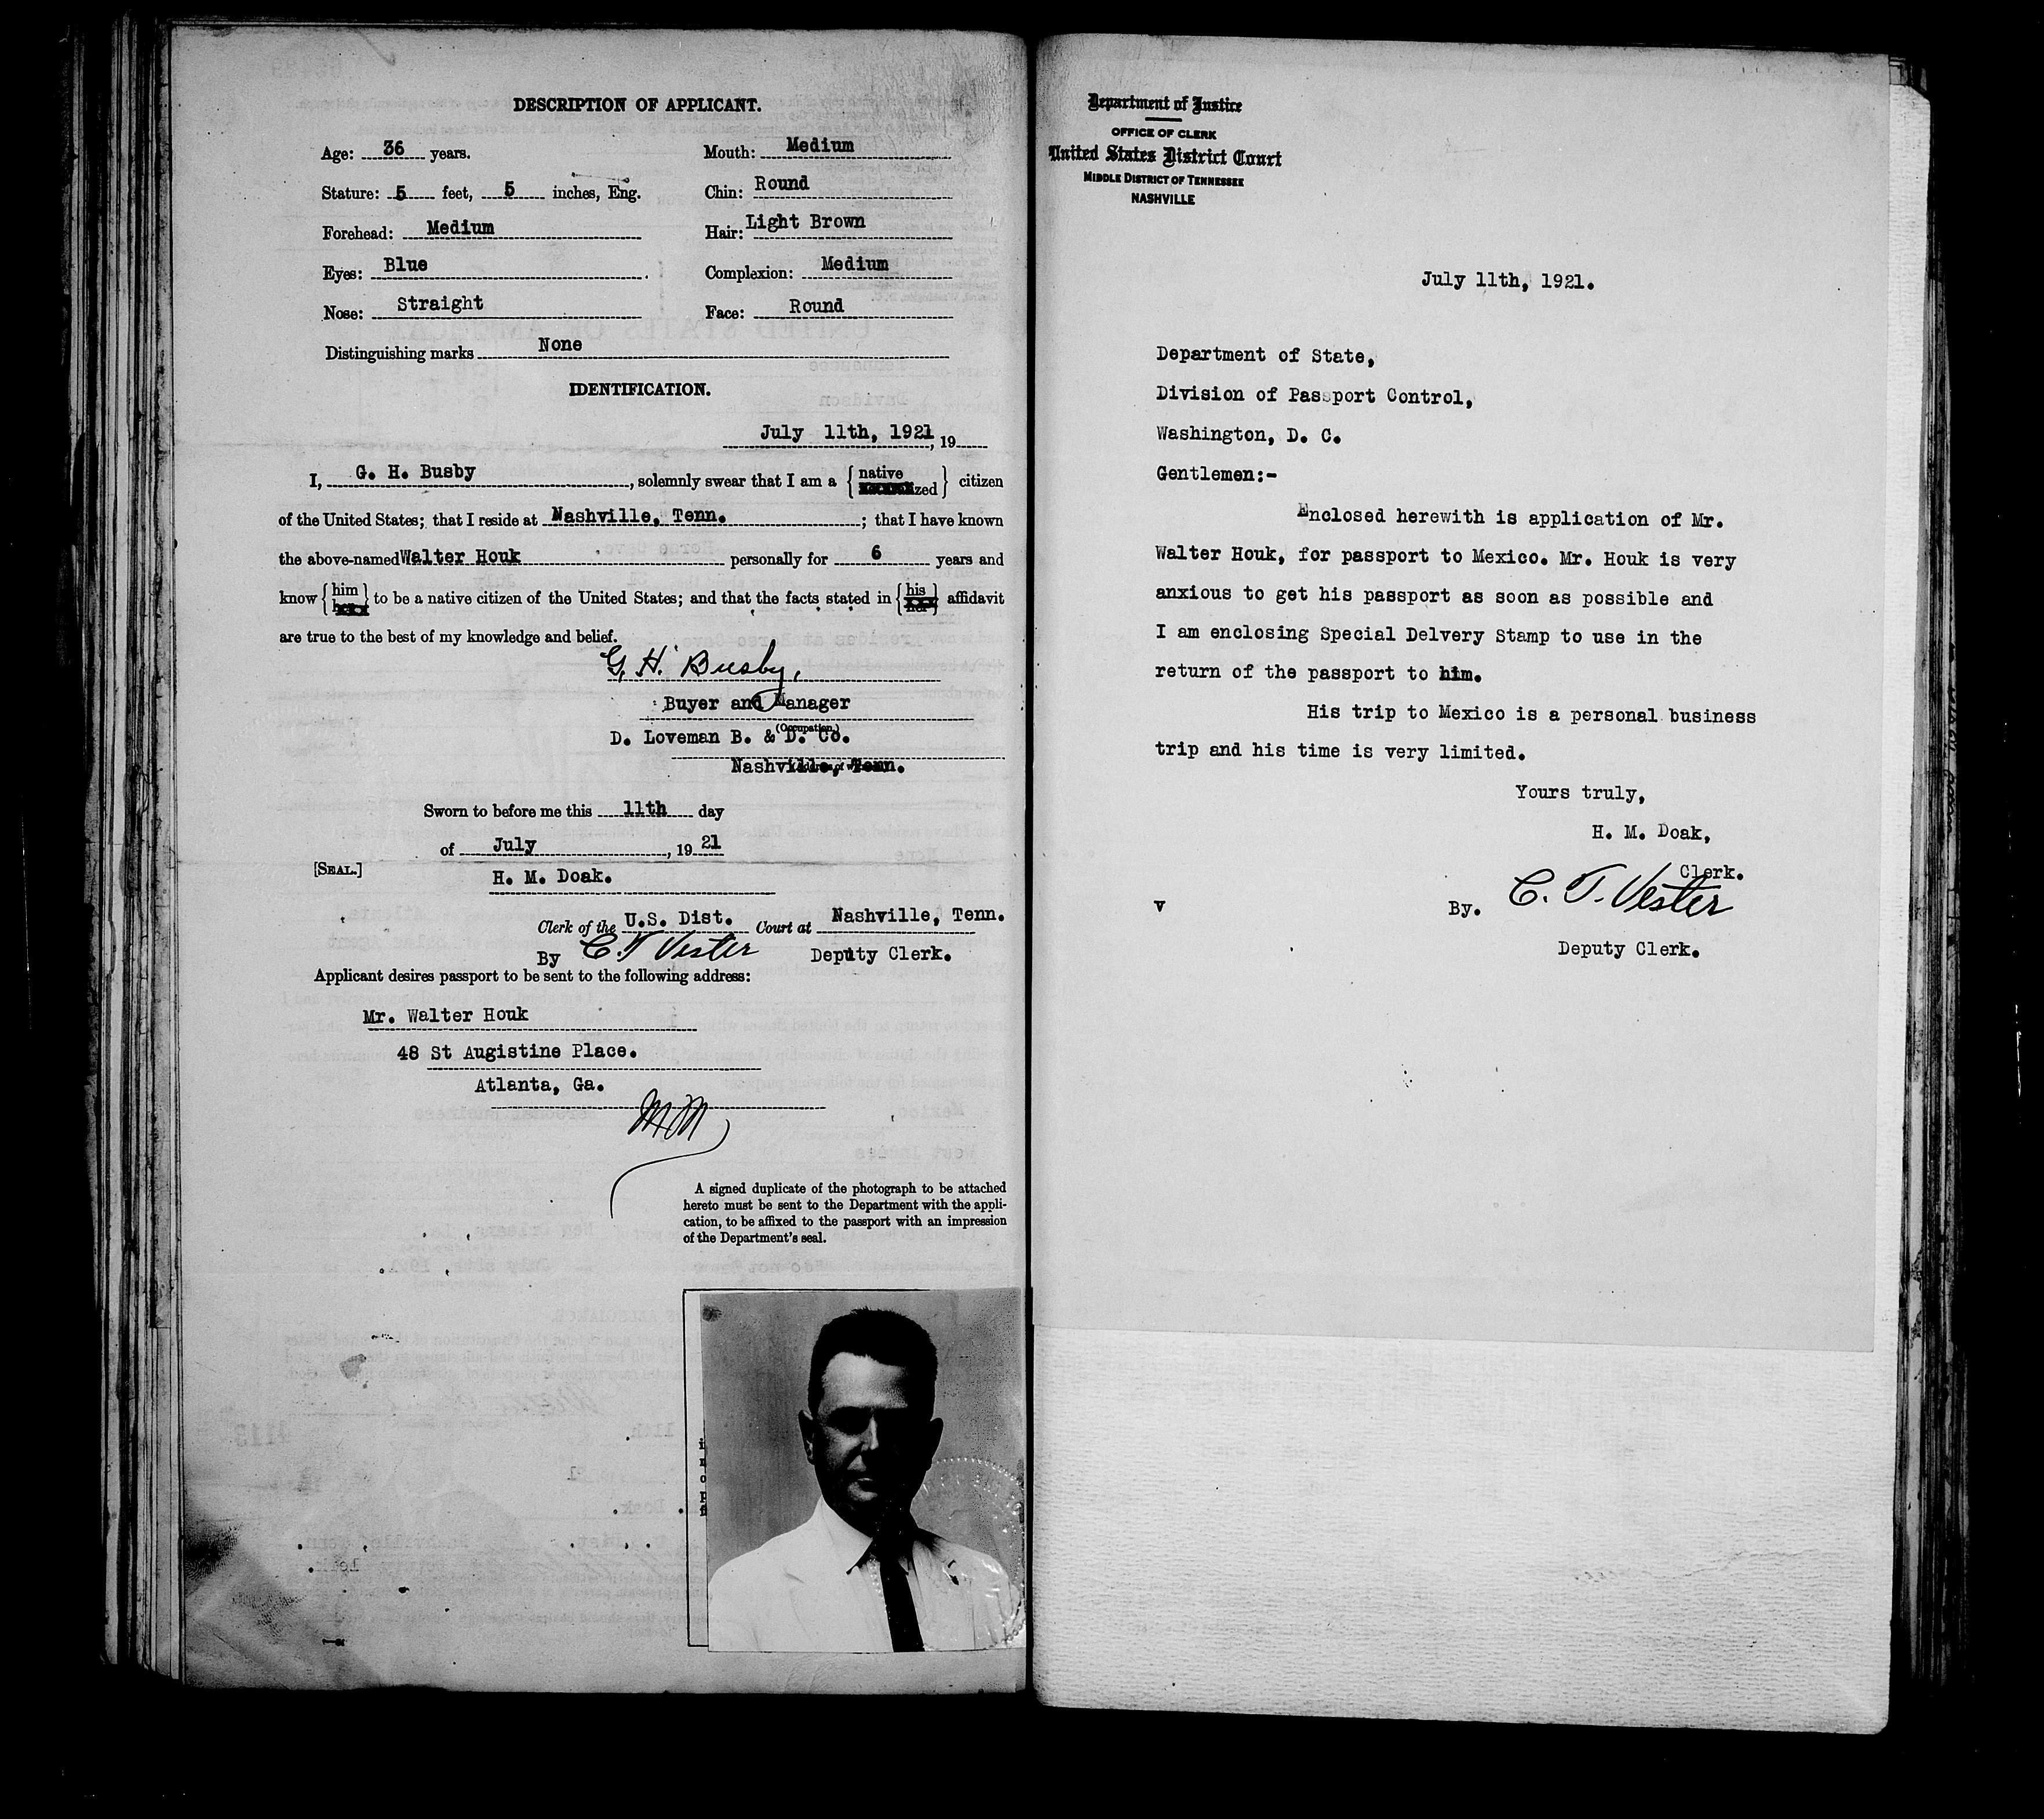 DESCRIPTION OF APPLICANT.
Age: 36 years.
Mouth: Medium
Stature: 5 feet, 5 inches, Eng.
Chin: Round
Forehead: Medium
Hair: Light Brown
Eyes: Blue
Complexion: Medium
Nose: Straight
Face: Round
Distinguishing marks None
IDENTIFICATION.
July 11th, 1921, 19
I, G. H. Busby, solemnly swear that I am a { native zed } citizen
of the United States; that I reside at Nashville, Tenn. ; that I have known
the above-named Walter Houk personally for 6 years and
know { him } to be a native citizen of the United States; and that the facts stated in { his her } affidavit
are true to the best of my knowledge and belief.
G. H. Busby,
Buyer and Manager
(Occupation.)
D. Loveman B. & D. Co.
Nashville, Tenn.
Sworn to before me this 11th day
of July, 19 21
[SEAL.]
H. M. Doak.
Clerk of the U.S. Dist. Court at Nashville, Tenn.
By C. T. Vester Deputy Clerk.
Applicant desires passport to be sent to the following address:
Mr. Walter Houk
48 St Augistine Place.
Atlanta, Ga.
A signed duplicate of the photograph to be attached
hereto must be sent to the Department with the appli-
cation, to be affixed to the passport with an impression
of the Department's seal.
Department of Justice
OFFICE OF CLERK
United States District Court
MIDDLE DISTRICT OF TENNESSEE
NASHVILLE
July 11th, 1921.
Department of State,
Division of Passport Control,
Washington, D. C.
Gentlemen:-
Enclosed herewith is application of Mr.
Walter Houk, for passport to Mexico. Mr. Houk is very
anxious to get his passport as soon as possible and
I am enclosing Special Delvery Stamp to use in the
return of the passport to him.
His trip to Mexico is a personal business
trip and his time is very limited.
Yours truly,
H. M. Doak,
Clerk.
v By. C. T. Vester
Deputy Clerk.